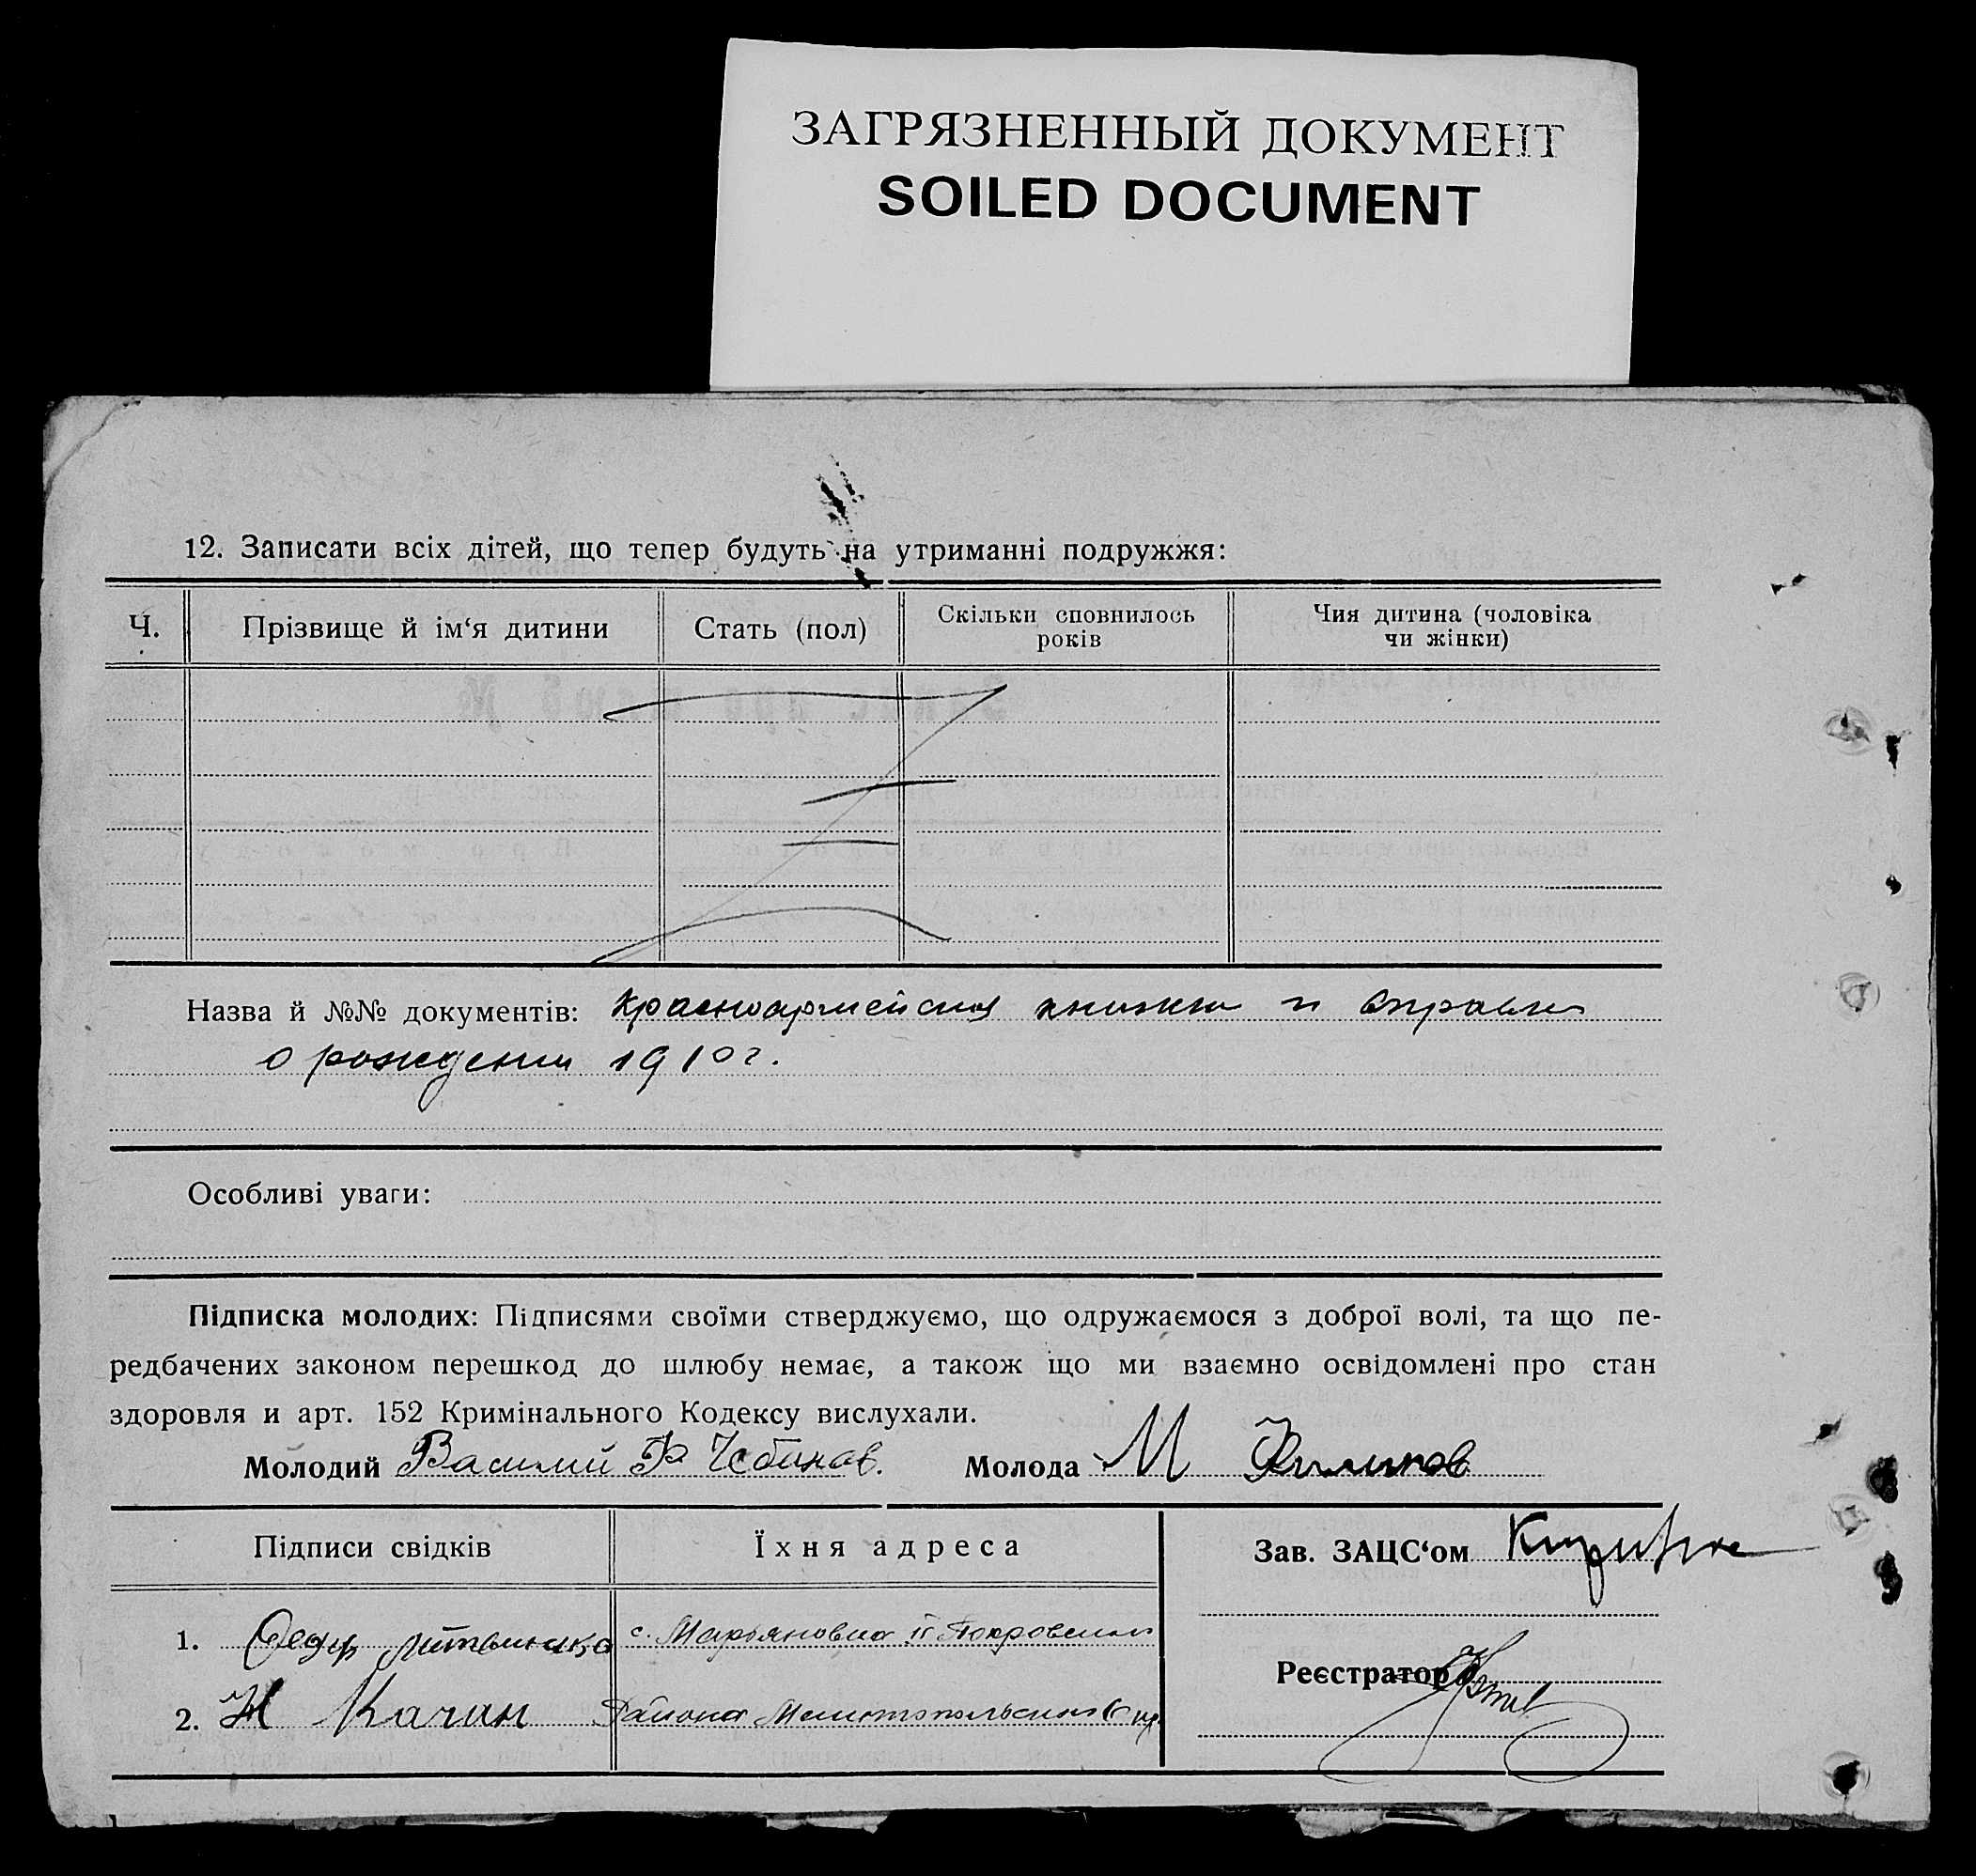 ЗАГРЯЗНЕННЫЙ ДОКУМЕНТ
SOILED DOCUMENT
12. Записати всіх дітей, що тепер будуть на утриманні подружжя:
Ч. Прізвище й ім‘я дитини Стать (пол) Скільки сповнилось років Чия дитина (чоловіка чи жінки)
Назва й №№ документів: Красноармейская книжка и справка
о рождении 1910 г.
Особливі уваги:
Підписка молодих: Підписями своїми стверджуємо, що одружаємося з доброї волі, та що пе-
редбачених законом перешкод до шлюбу немає, а також що ми взаємно освідомлені про стан
здоровля и арт. 152 Кримінального Кодексу вислухали.
Молодий Василий Ф Молода М
Підписи свідків Їхня адреса Зав. ЗАЦС‘ом
1. Федір с. Марьяновка Покровского
Реєстратор
2. Н Качан Района Мелитопольского